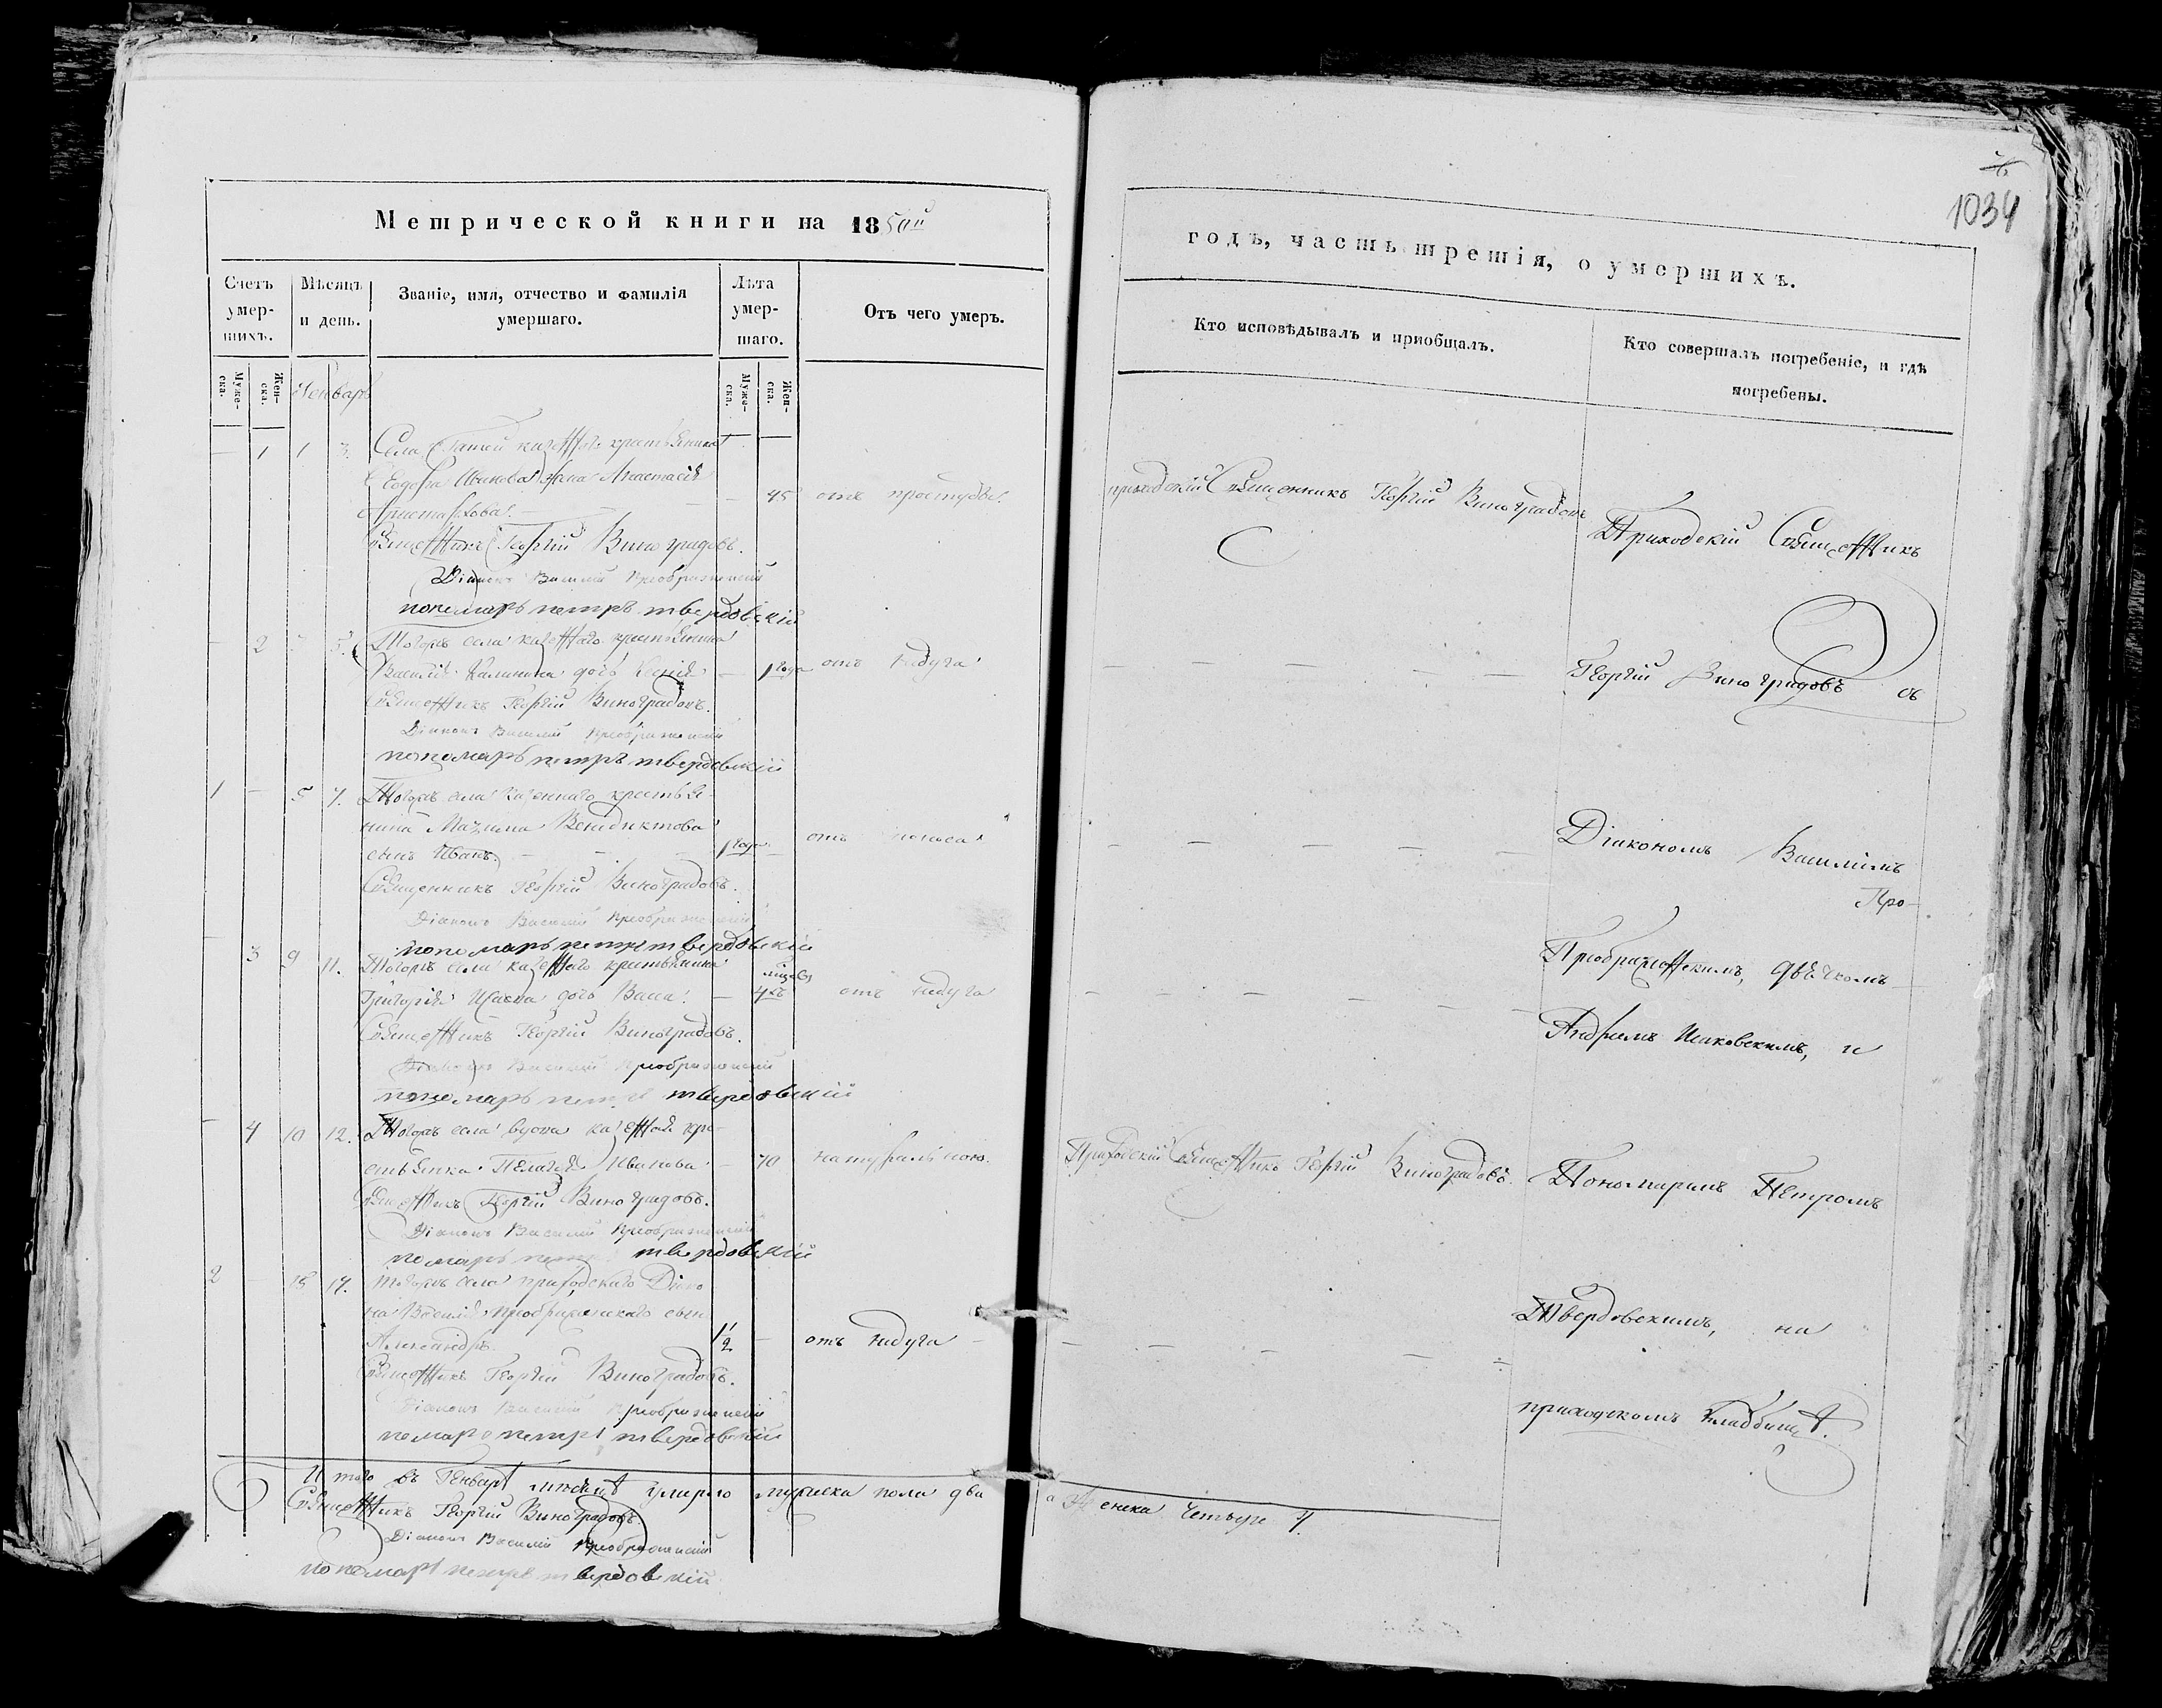 1034
Метрической книги на 1850й
годъ, часть третія, о умершихъ.
Счетъ умер-шихъ.
Мѣсяцъ и день.
Званіе, имя, отчество и фамилія умершаго.
Лѣта умер-шаго.
Отъ чего умеръ.
Кто исповѣдывалъ и приобщалъ.
Кто совершалъ погребеніе, и гдѣ погребены.
Муже-ска.
Жен-ска.
Муже-ска.
Жен-ска.
Генварь
— 1 1 3. Села казеннаго крестьянина
жена Анастасія
— 45 отъ простуды.
Священникъ Георгій Виноградовъ.
Діаконъ Василій Преображенскій
пономарь петръ твердовскій
— 2 5. Тогожъ села казеннаго крестьянина
Василія Калинина дочь Ксенія — 1 года отъ недуга
Священникъ Георгій Виноградовъ.
Діаконъ Василій Преображенскій
пономарь петръ твердовскій
1 — 5 7. Тогожъ села казеннаго крестья-
нина Максима Венидиктова
сынъ Иванъ. 1 года отъ
Священникъ Георгій Виноградовъ.
Діаконъ Василій Преображенскій
пономарь петръ твердовскій
— 3 9 11. Тогожъ села казеннаго крестьянина
Григорія Исаева дочь Васса. — 4хъ отъ недуга
Священникъ Георгій Виноградовъ.
Діаконъ Василій Преображенскій
пономарь петръ твердовскій
— 4 10 12. Тогожъ села вдова казенная кре-
стьянка Пелагея Иванова — 70 натурально.
Священникъ Георгій Виноградовъ.
Діаконъ Василій Преображенскій
помарь петръ твердовскій
2 — 15 17. Тогожъ села приходскаго Діако
на Василія Преображенскаго сынъ
Александръ. 1/2 — отъ недуга
Священникъ Георгій Виноградовъ.
Діаконъ Василій Преображенскій
помарь петръ твердовскій
Итого въ Генварѣ мѣсяцѣ умерло мужеска пола два
а женска четыре 4.
Священникъ Георгій Виноградовъ.
Діаконъ Василій Преображенскій
пономарь петръ твердовскій
приходскій Священникъ Георгій Виноградовъ
Приходскій Священникъ Георгій Виноградовъ.
Приходскій Священникъ
Георгій Виноградовъ съ
Діакономъ Василіемъ
Прео-
Преображенскимъ, дьячкомъ
Андреемъ Исаковскимъ, и
Пономаремъ Петромъ
Твердовскимъ, на
приходскомъ кладбищѣ.